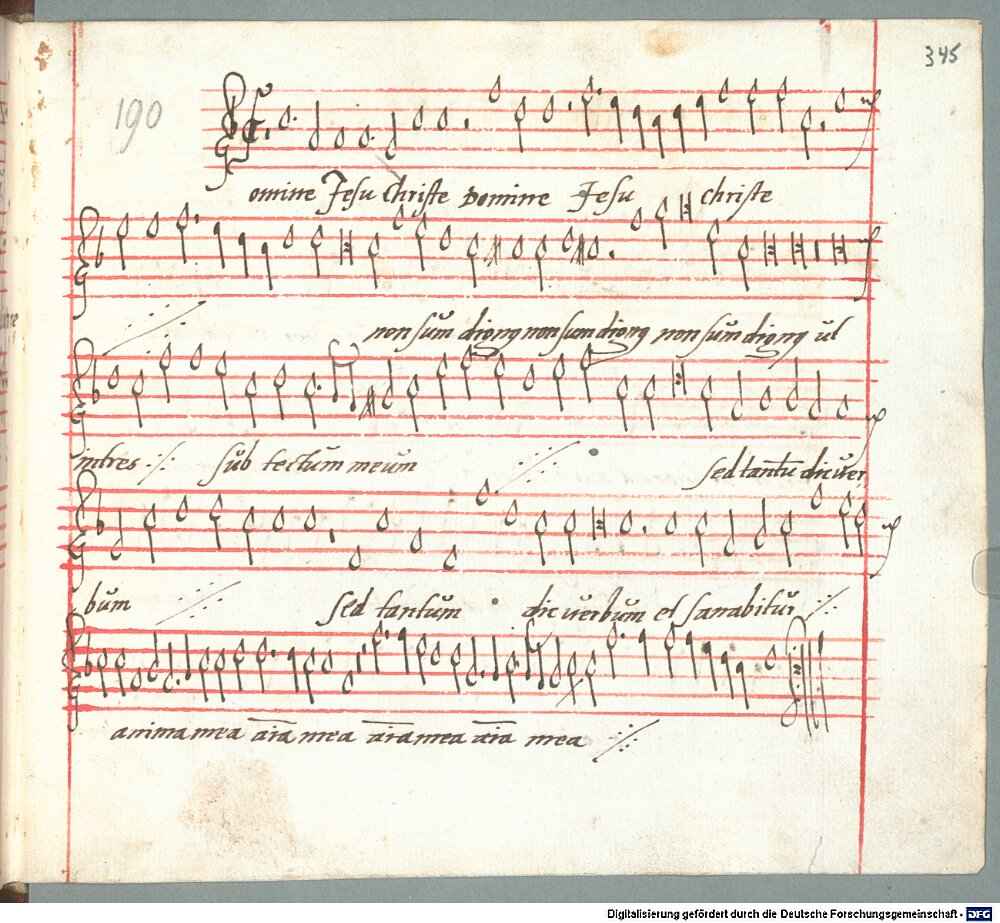 345
190
omine Jesu Christe Domine Jesu christe
non sum dignq non sum dignq non sum dignq ut
intres sub tectum meum sed tantu dic ver
bum sed tantum dic verbum et sanabitur
anima mea aia mea aia mea aia mea
Digitalisierung gefördert durch die Deutsche Forschungsgemeinschaft - DFG